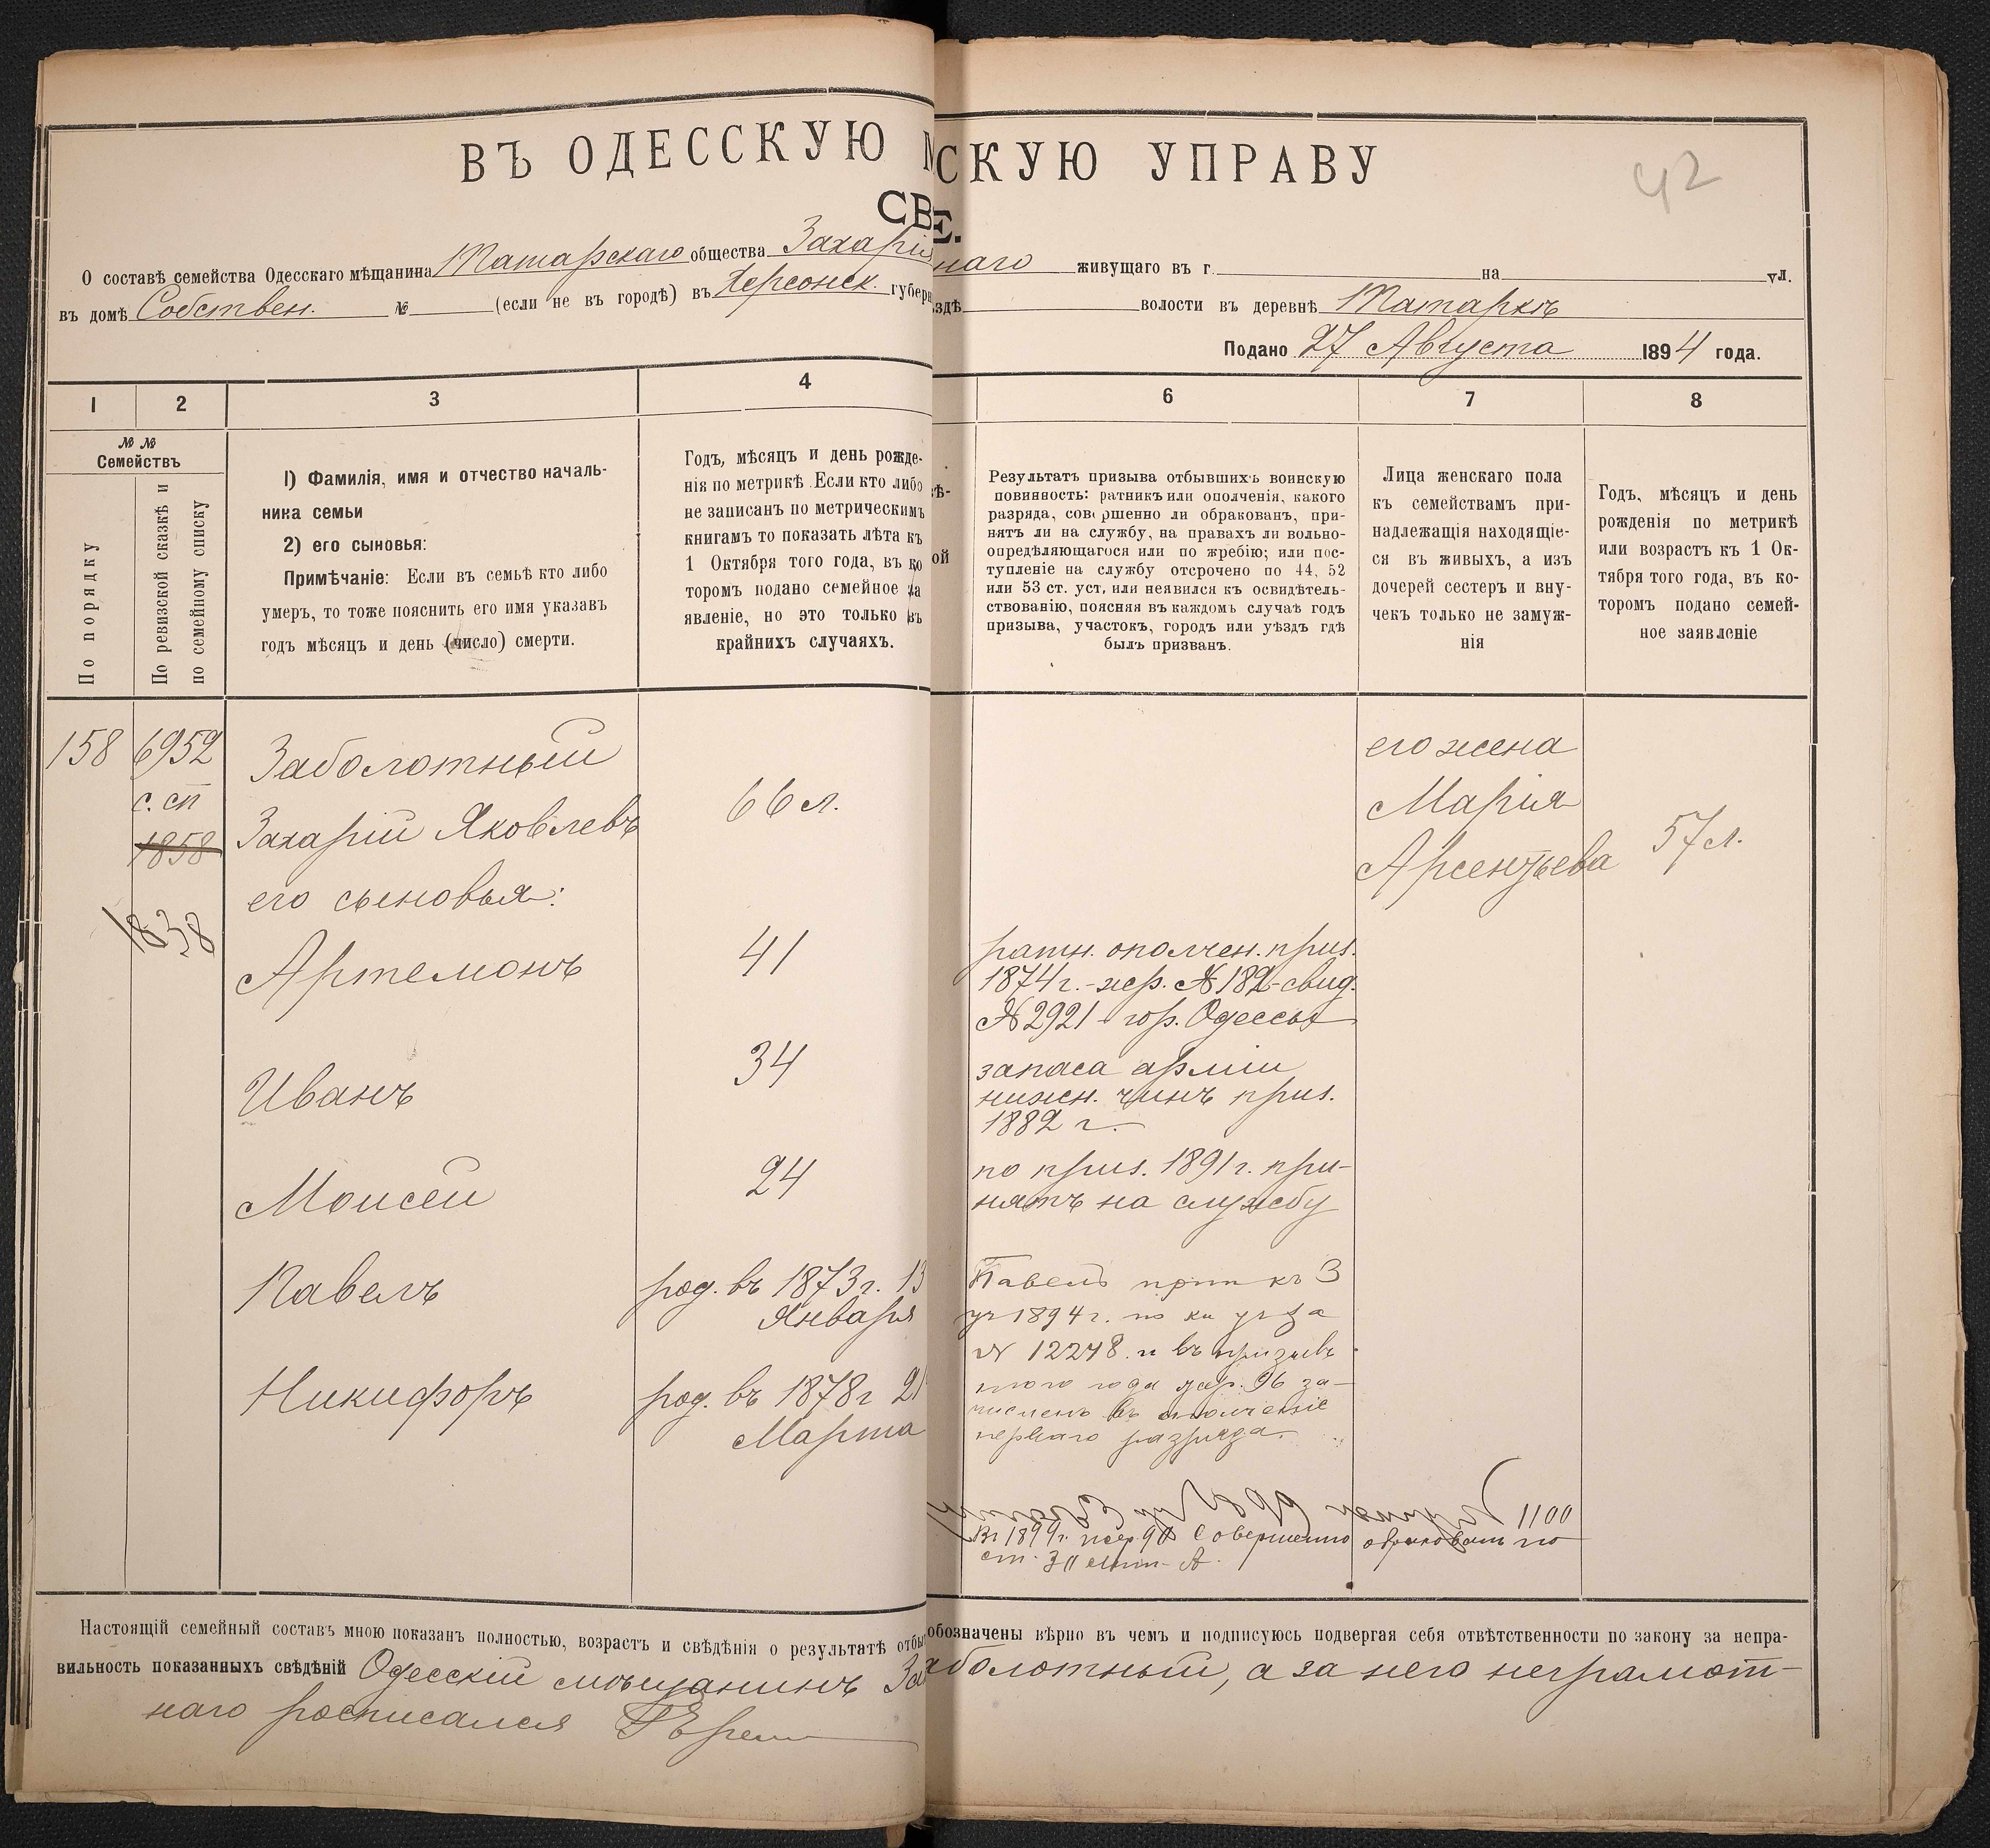 ВЪ ОДЕССКУЮ М
СКУЮ УПРАВУ
42
СВ
Е.
О составѣ семейства Одесскаго мѣщанина Татарскаго общества Захарія
наго живущаго въ г. на ул.
въ домѣ Собствен. № (если не въ городѣ) въ Херсонск. губерн
здѣ волости въ деревнѣ Татаркѣ
Подано 27 Августа 1894 года.
1 2 3 4
6 7 8
№ № Семействъ
По порядку
По ревизской сказкѣ и
по семейному списку
1) Фамилія, имя и отчество началь-
ника семьи
2) его сыновья:
Примѣчаніе: Если въ семьѣ кто либо
умеръ, то тоже пояснить его имя указавъ
годъ мѣсяцъ и день (число) смерти.
Годъ, мѣсяцъ и день рожде-
нія по метрикѣ. Если кто либо
не записанъ по метрическимъ
книгамъ то показать лѣта къ
1 Октября того года, въ ко
торомъ подано семейное за
явленіе, но это только въ
крайнихъ случаяхъ.
ѣ-
ой
Результатъ призыва отбывшихъ воинскую
повинность: ратникъ или ополченія, какого
разряда, совершенно ли обракованъ, при-
нятъ ли на службу, на правахъ ли вольно-
опредѣляющагося или по жребію; или пос-
тупленіе на службу отсрочено по 44, 52
или 53 ст. уст, или неявился къ освидѣтель-
ствованію, поясняя въ каждомъ случаѣ годъ
призыва, участокъ, городъ или уѣздъ гдѣ
былъ призванъ.
Лица женскаго пола
къ семействамъ при-
надлежащія находящіе-
ся въ живыхъ, а изъ
дочерей сестеръ и вну-
чекъ только не замуж-
нія
Годъ, мѣсяцъ и день
рожденія по метрикѣ
или возрастъ къ 1 Ок-
тября того года, въ ко-
торомъ подано семей-
ное заявленіе
158 6952
с. сп
1858
1838
Заболотный
Захарій Яковлевъ
66 л.
его жена
Марія
Арсентьева
57 л.
его сыновья:
Артемонъ
41
ратн. ополчен. приз.
1874 г. - жер. № 182 - свид.
№ 2921 - гор. Одессы
Иванъ
34
запаса арміи
нижн. чинъ приз.
1882 г.
Моисей
24
по приз. 1891 г. при-
нятъ на службу
Павелъ
род. въ 1873 г. 13
Января
Павелъ прип къ 3
уч 1894 г. по кн
№ 12248 и въ призывъ
того года жер. 96 за-
численъ въ ополченіе
перваго разряда.
Никифоръ
род. въ 1878 г 21
Марта
1100
Въ 1899 г. жер. 90 Совершенно обракованъ по
ст. 30 лит. А.
Настоящій семейный составъ мною показанъ полностью, возрастъ и свѣдѣнія о результатѣ отбы
обозначены вѣрно въ чемъ и подписуюсь подвергая себя отвѣтственности по закону за непра-
вильность показанныхъ свѣдѣній Одесскій мѣщанинъ За
аболотный, а за него неграмот-
наго росписался